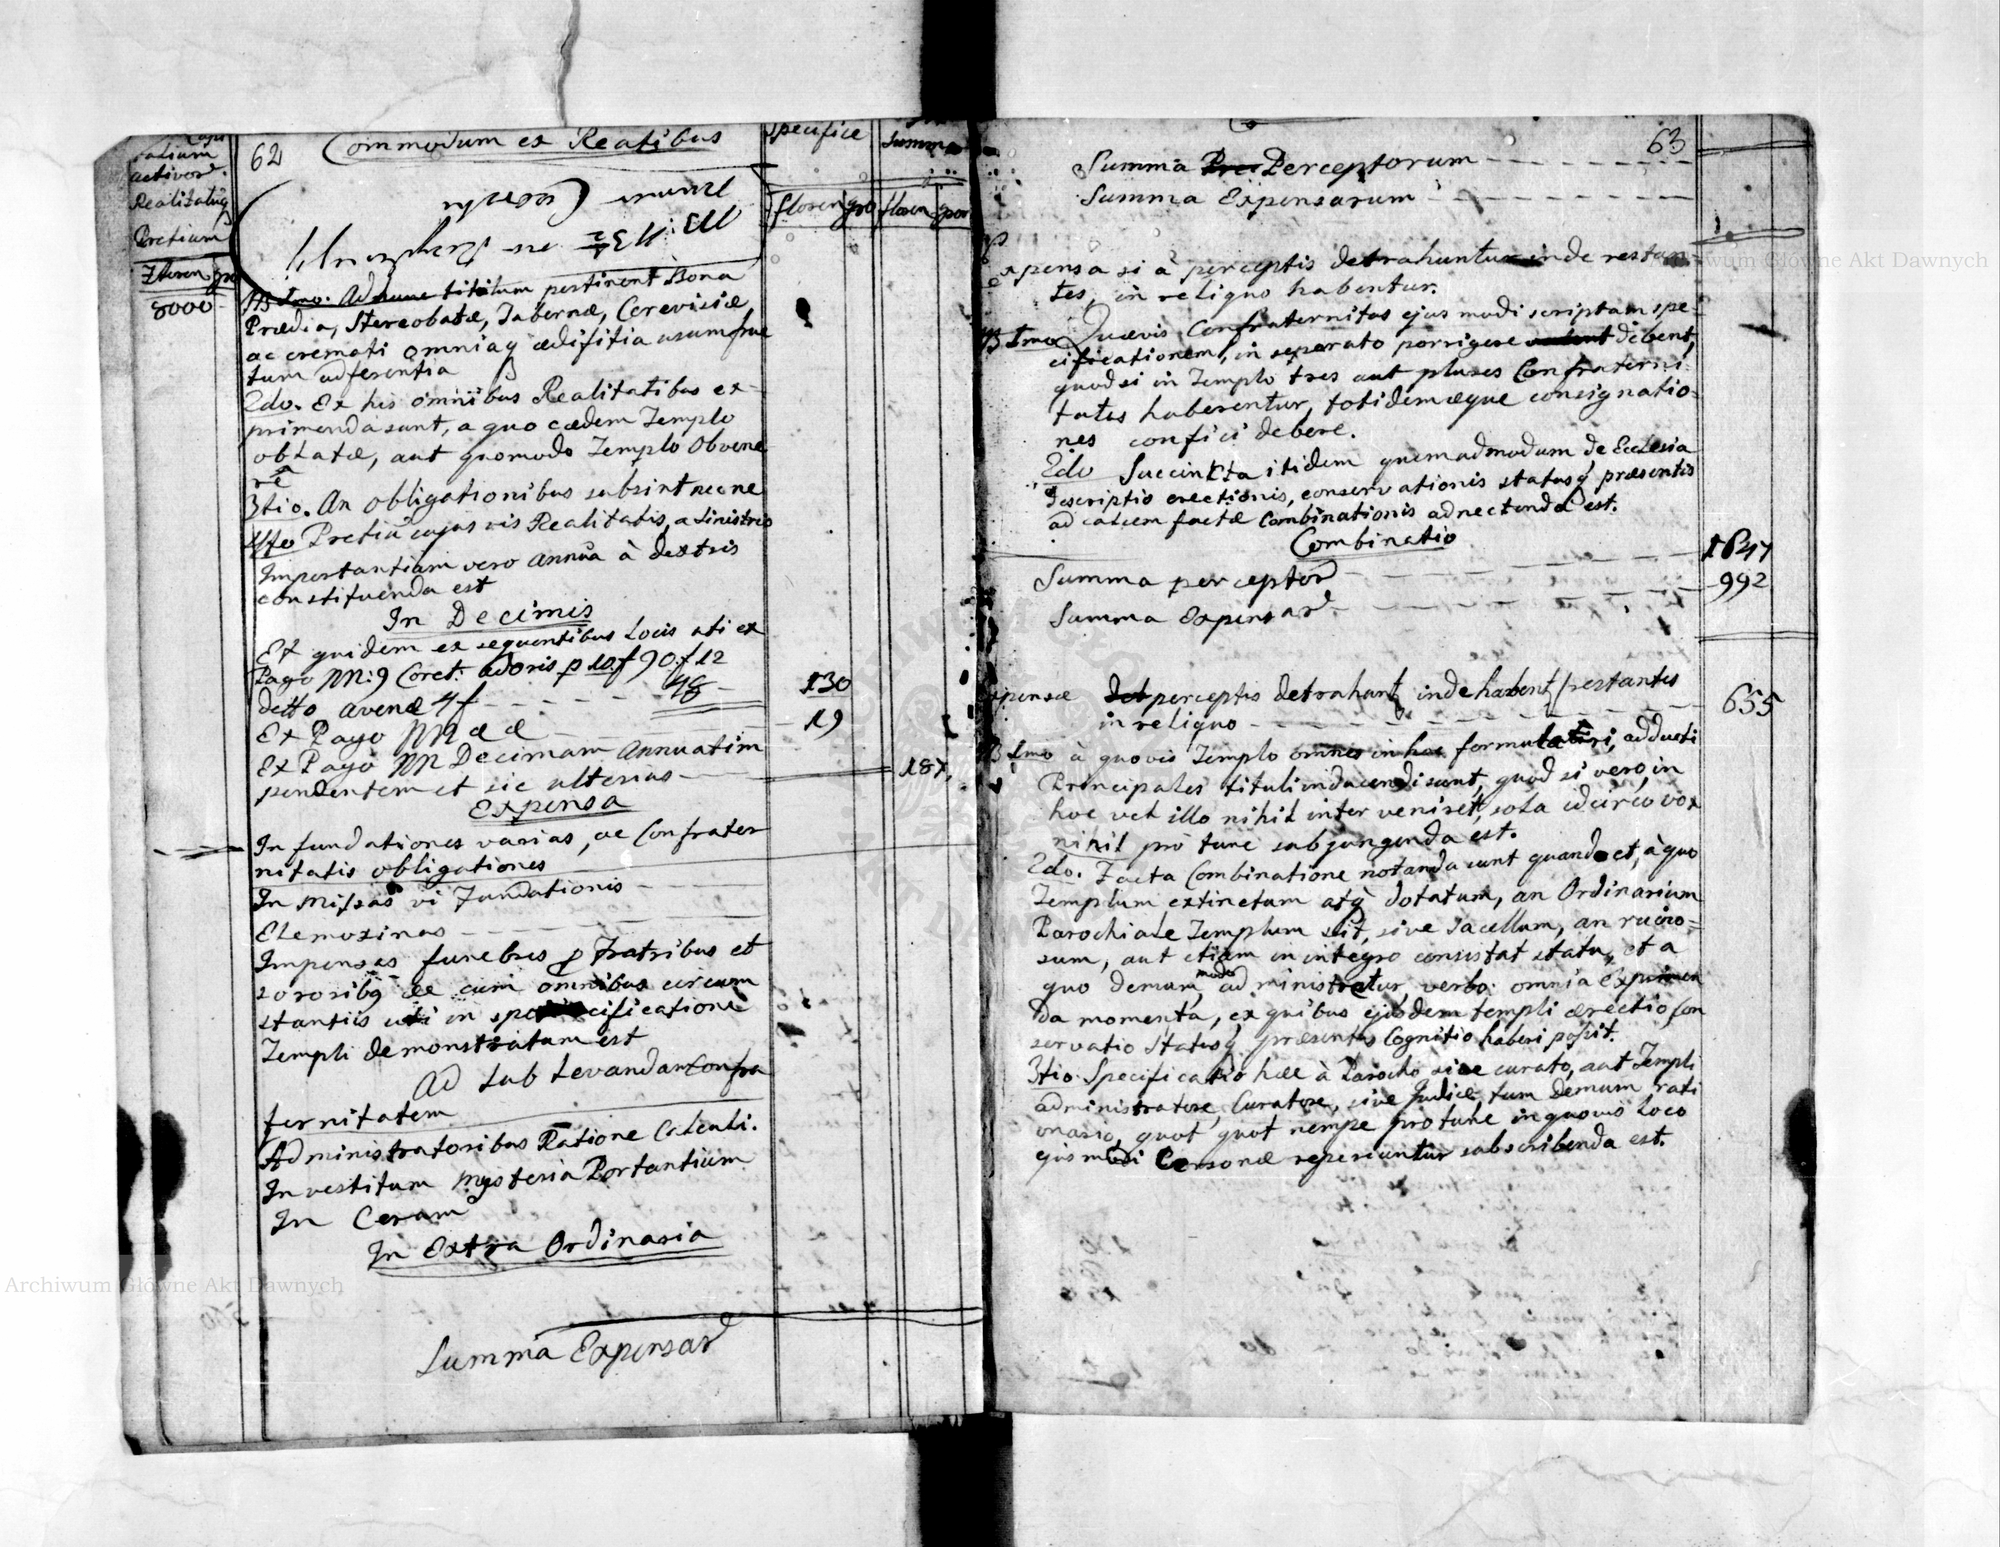 62
Commodum ex Realibus
specifice
Summa
Capi
talium
activor.
Realitatūq
Pretium
Floren gro
8000
floren gro floren gro
NB 1mo. Ad hunc titulum pertinent Bona
Prædia, Stereobatæ, Tabernæ, Cerevisiæ
ac cremati omniaq ædifitia usumfruc
tum adferentia
2do. Ex his omnibus Realitatibus ex-
primenda sunt, a quo eædem Templo
oblatæ, aut quomodo Templo Obvene
re
3tio. An obligationibus subsint necne
4to Pretiū cujus vis Realitatis, a sinistris
Importantiam vero annuā à dextris
constituenda est
In Decimis
Et quidem ex sequentibus Locis uti ex
Pago NN: 9 Coret: p 10 f 90. f 12
detto avenæ 4 f - - - - 48 - 130
Ex Pago NN - 19
Ex Pago NN Decimam annuatim
pendentem et sic ulterius - 187,
Expensa
In fundationes varias, ac Confrater
nitatis obligationes
In Missas vi Fundationis - - - -
Elemozinas - - - -
Impensas funebres p Fratribus et
sororibq ac cum omnibus circum
stantiis uti in specificatione
Templi demonstratum est
Ad sublevandam Confra
ternitatem
Administratoribus Ratione Calculi.
In vestitum mysteria Portantium
In Ceram
In Extra Ordinaria
Summa Expensar
63
Summa Perceptorum - - - - - - -
Summa Expensarum - - - - - - -
Expensa si à perceptis detrahuntur inde restan
tes, in reliquo habentur.
NB 1mo Quævis Confraternitas ejus modi scriptam spe-
cificationem, in separato porrigere debent,
quod si in Templo tres aut plures Confraterni-
tates haberentur, totidem æque consignatio-
nes confici debere.
2do Succinta itidem quemadmodum de Ecclesia
descriptio erectionis, conservationis statusq præsentis
ad calcem factæ Combinationis adnectenda est.
Combinatio
Summa perceptor - - - - - - 1647
Summa Expensar - - - - - - 992
Expensæ perceptis detrahant inde habent restantes
in reliquo - - - - - - - 655
NB 1mo à quovis Templo omnes in hoc formulari, adducti
Principales tituli inducendi sunt, quod si vero, in
hoc vel illo nihil inter veniret, sola idcirco vox
nihil pro tunc subjungenda est.
2do. Facta Combinatione notanda sunt quando et, à quo
Templum extinctum atq dotatum, an Ordinarium
Parochiale Templum sit, sive sacellum, an ruino-
sum, aut etiam in integro consistat statu, et a
quo demum modo administretur, verbo: omnia exprimen
da momenta, ex quibus ejusdem templi ærectio, con
servatio statusq præsentis Cognitio haberi possit.
3tio. Specificatio hæc à Parocho sive curato, aut Templi
administratore, Curatore, sive Judice, tum demum rati
onario, quot quot nempe pro tunc in quovis Loco
ejus modi Personæ reperiuntur subscribenda est.
Archiwum Główne Akt Dawnych
Archiwum Główne Akt Dawnych